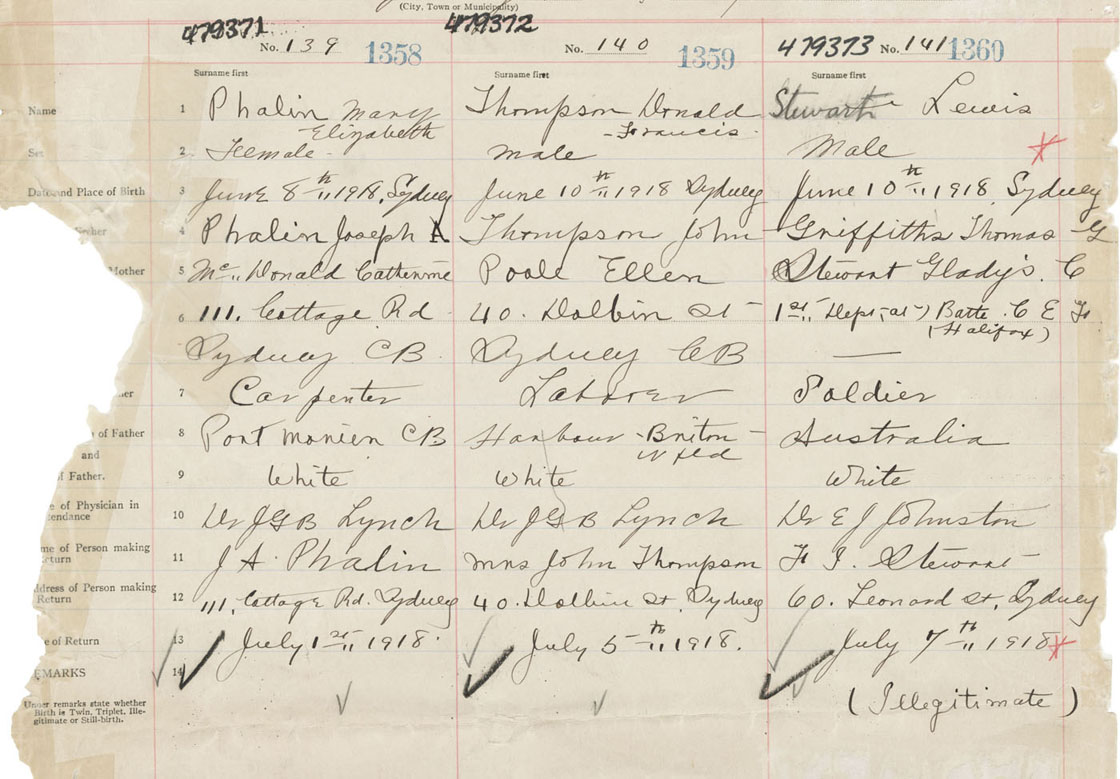 (City, Town or Municipality)
479371 479372
No. 139 1358 No. 140 1359 479373 No. 141 1360
Surname first Surname first Surname first
Name 1 Phalin Mary Thompson Donald Stewart Lewis
Elizabeth Francis
2 Female Male Male
Date and Place of Birth 3 June 8th 1918, Sydney June 10th 1918 Sydney June 10th 1918, Sydney
4 Phalin Joseph A Thompson John Griffiths Thomas G
Mother 5 Mc Donald Catherine Poole Ellen Stewart Gladys. C
6 111. Cottage Rd 40. Dolbin St 1st Dept Batt. C E F
(Halifax)
Sydney CB. Sydney CB —
7 Carpenter Laborer Soldier
of Father 8 Port Morien CB Harbour Briton Australia
and Nfld
Father. 9 White White White
of Physician in
tendance 10 Dr JGB Lynch Dr JGB Lynch Dr E J Johnston
me of Person making
eturn 11 J A. Phalin Mrs John Thompson F I. Stewart
ddress of Person making
Return 12 111, Cottage Rd. Sydney 40. Dolbin St, Sydney 60. Leonard St, Sydney
e of Return 13 July 1st 1918. July 5th 1918. July 7th 1918
EMARKS 14
Under remarks state whether
Birth is Twin, Triplet, Ille-
gitimate or Still-birth.
(Illegitimate)